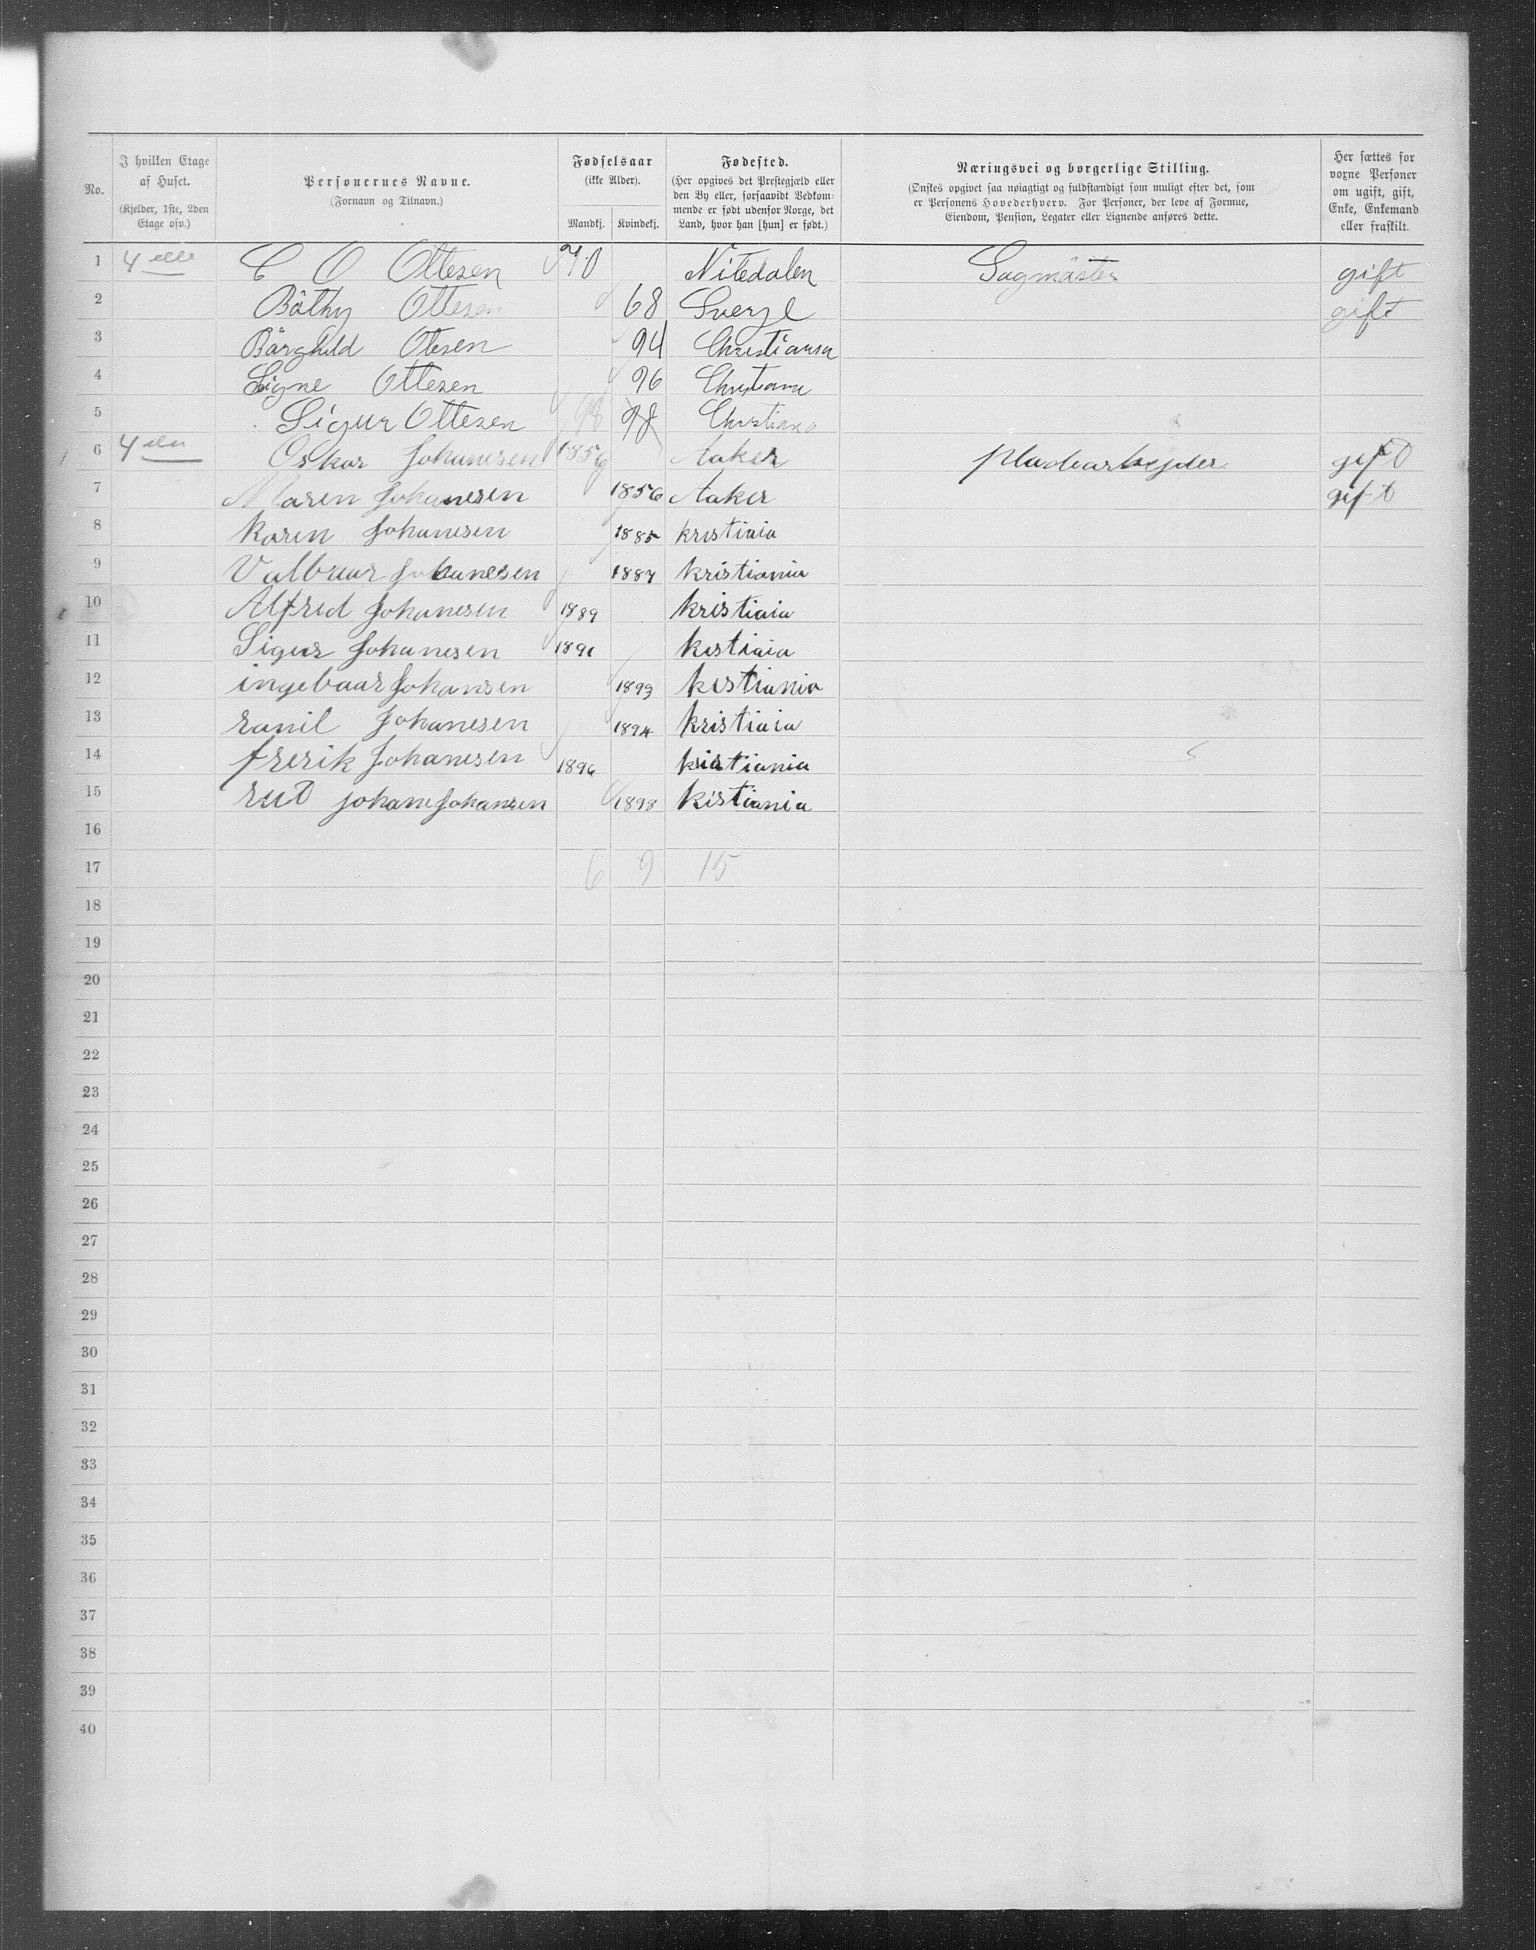 No.
I hvilken Etage af Huset.
(Kjelder, 1ste, 2den Etage osv.)
Personernes Navne.
(Fornavn og Tilnavn.)
Fødselsaar
(ikke Alder).
Mandkj. Kvindekj.
Fødested.
(Her opgives det Prestegjæld eller den By eller, forsaavidt Vedkommende er født udenfor Norge, det Land, hvor han [hun] er født.)
Næringsvei og borgerlige Stilling.
(Ønskes opgivet saa nøiagtigt og fuldstændigt som muligt efter det, som er Personens Hovederhverv. For Personer, der leve af Formue, Eiendom, Pension, Legater eller Lignende anføres dette.
Her sættes for voxne Personer om ugift, gift, Enke, Enkemand eller fraskilt.
1 4 C O Ottesen 70 Nitedalen Sagmäster gift
2 Bäthy Ottesen 68 Sverge gift
3 Bärghild Otesen 94 Christiania
4 Signe Ottesen 96 Christiania
5 Sigur Ottesen 98 98 Christiania
6 4 Oskar Johanesen 1856 Aaker pladearbejder gift
7 Maren Johanesen 1856 Aaker gift
8 Karen Johanesen 1885 kristiaia
9 Valbaar Johanesen 1887 kristiania
10 Alfred Johanesen 1889 kristiaia
11 Sigur Johanesen 1891 kistiaia
12 ingebaar Johansen 1893 kistiania
13 ranil Johanesen 1894 kristiaia
14 frerik Johanesen 1896 kristiania
15 rut johane Johansen 1898 kistiania
16
17 6 9 15
18
19
20
21
22
23
24
25
26
27
28
29
30
31
32
33
34
35
36
37
38
39
40